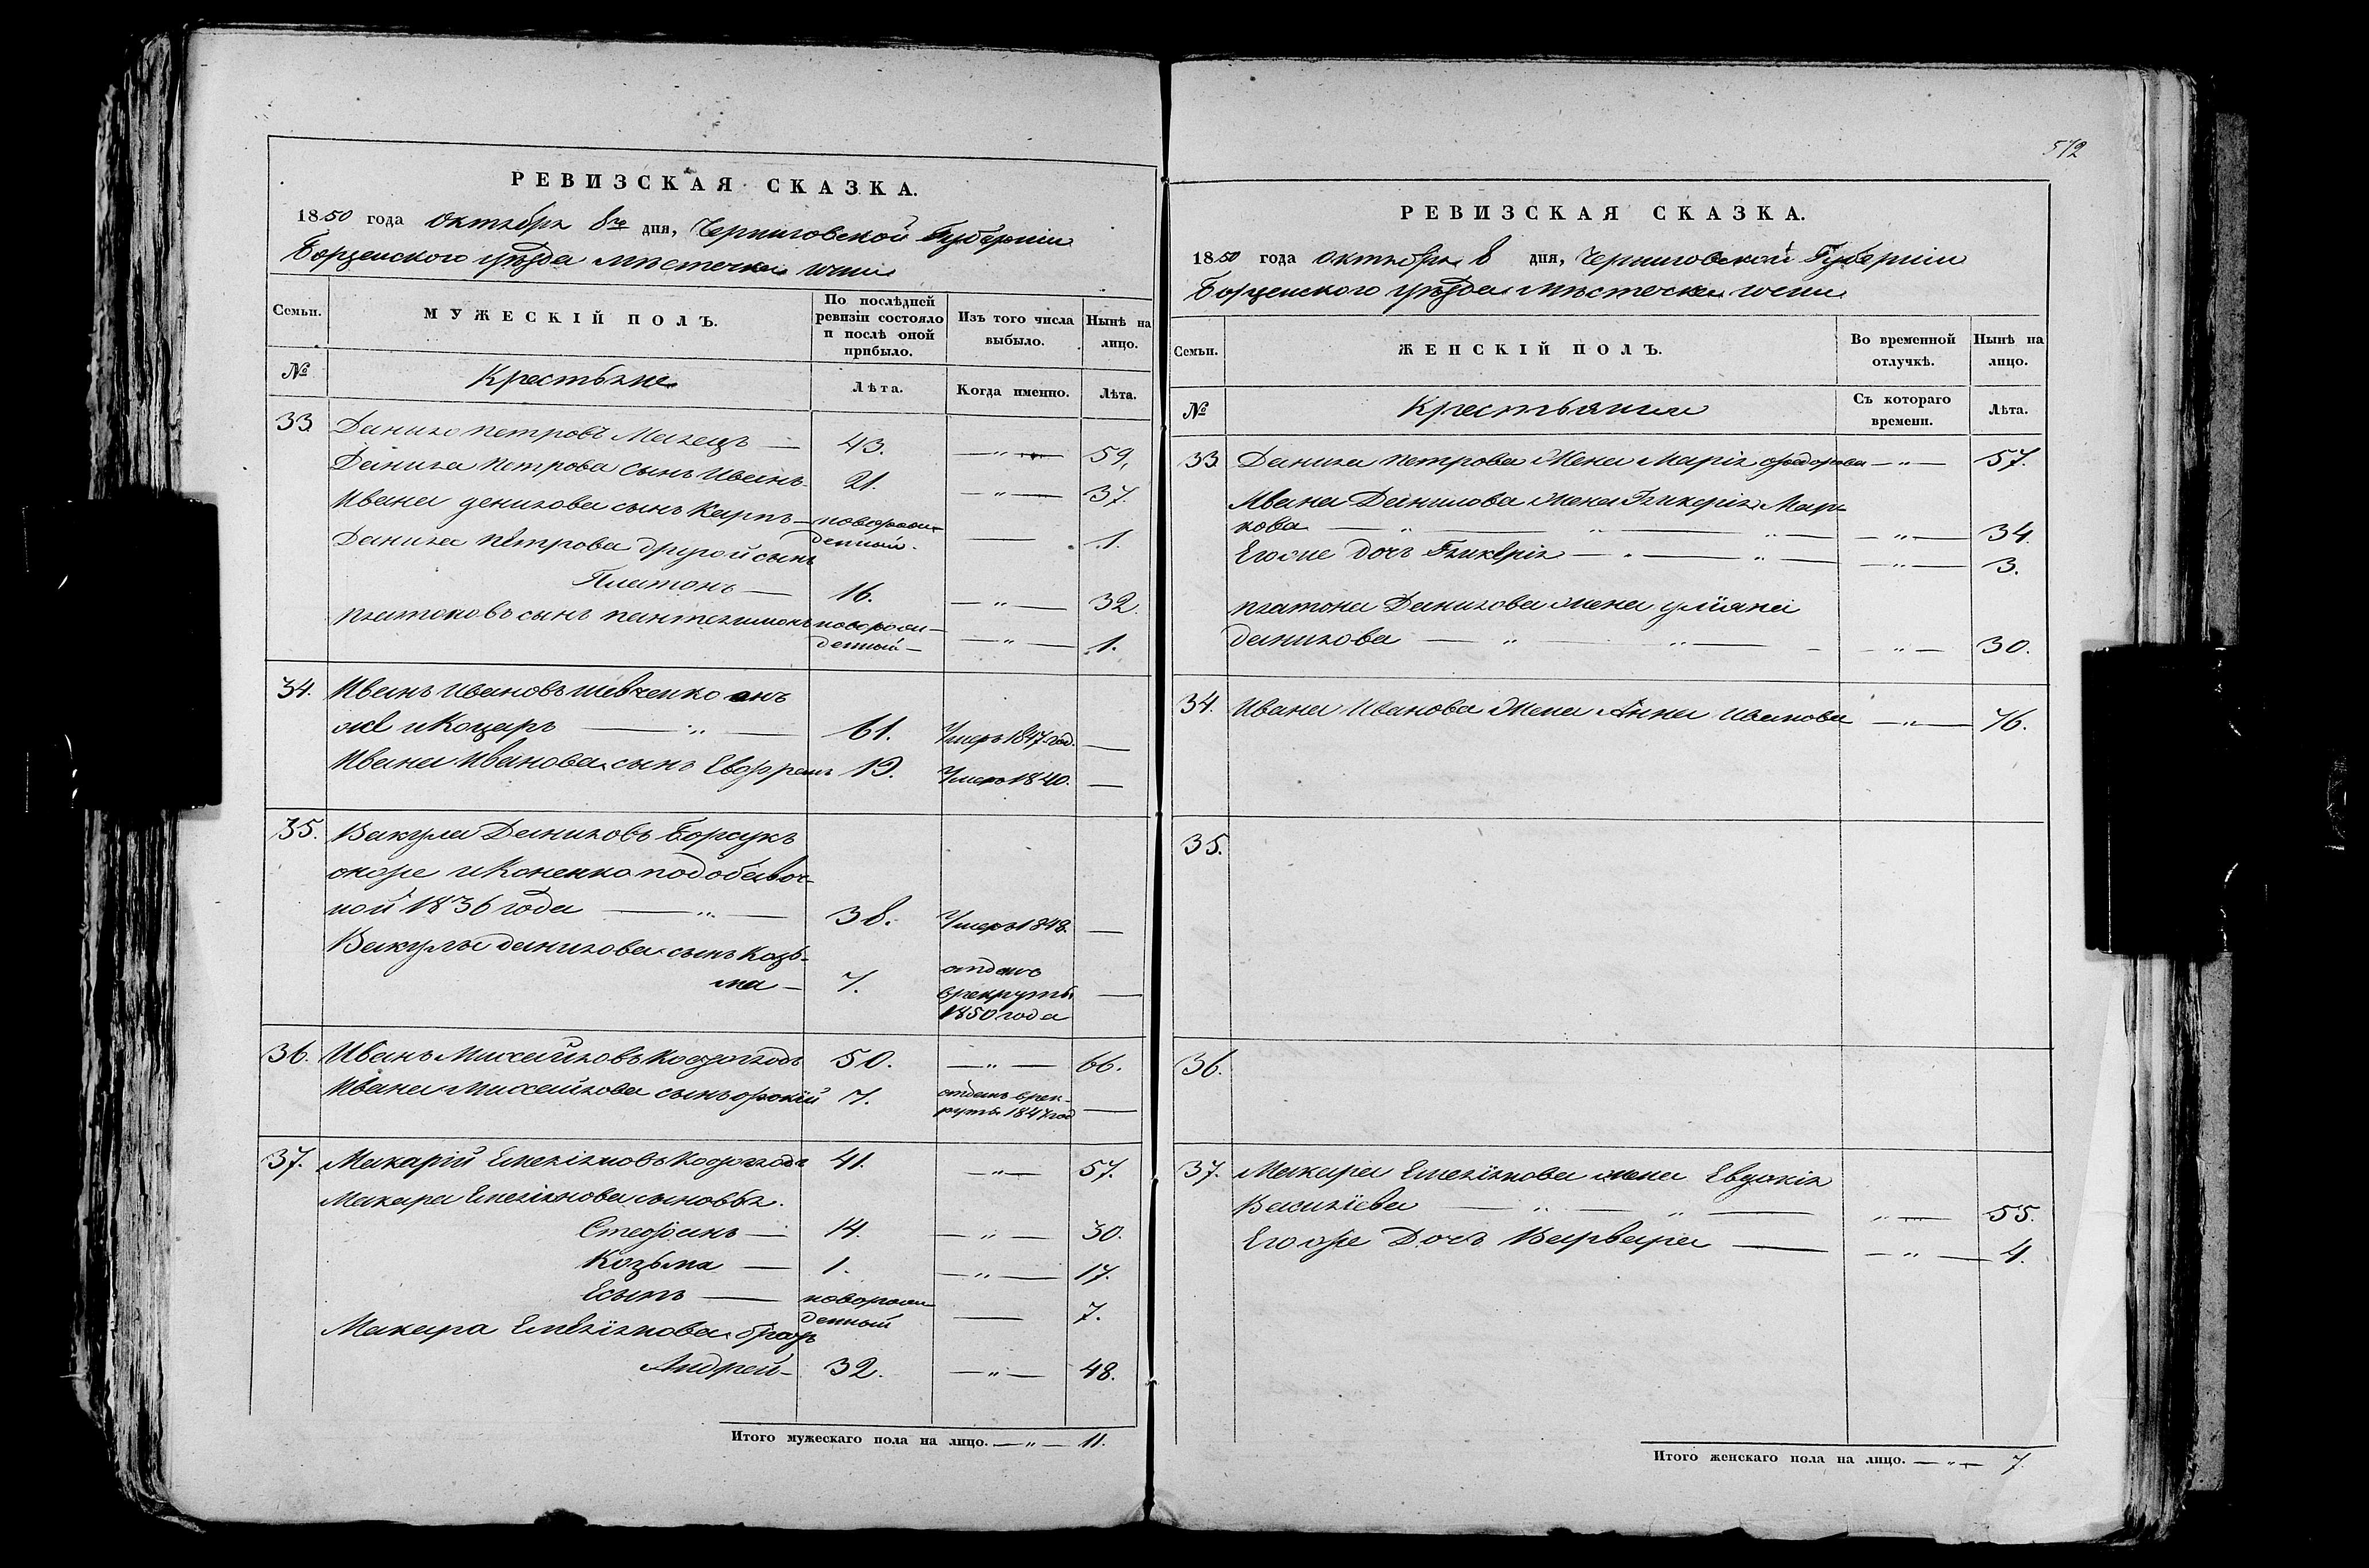 РЕВИЗСКАЯ СКАЗКА.
1850 года Октября 8го дня, Черниговской Губернiи
Борзенского уѣзда мѣстечка Ични
Семьи.
МУЖЕСКIЙ ПОЛЪ.
По послѣдней ревизiи состояло и послѣ оной прибыло.
Изъ того числа выбыло.
Нынѣ на лицо.
№
Крестьяне
Лѣта.
Когда именно.
Лѣта.
33. Данило Петровъ — 43. — „ — 59,
Данила Петрова сынъ Иванъ 21. — „ — 37.
Ивана Данилова сынъ Карпъ — новорож-
денный. — 1.
Данила Петрова другой сынъ
Платонъ — 16. — „ — 32.
Платоновъ сынъ Пантелимонъ новорож-
денный — — „ — 1.
34. Иванъ Ивановъ Шевченко онъ
же и Коцаръ — „ — 61. Умеръ 1847 год. —
Ивана Иванова сынъ Евфремъ 19. Умеръ 1840. —
35. Вакула Даниловъ Борсукъ
онже и Коненко по добавоч-
ной 1836 года — „ — 38. Умеръ 1848. —
Вакулы Данилова сынъ Козь-
ма — 7. отданъ
врекруты —
1850 года
36. Иванъ Михайловъ 50. — „ — 66.
Ивана Михайлова сынъ 7. отданъ врек-
руты 1847 год —
37. Макарiй Емелiяновъ 41. — „ — 57.
Макара Емелiянова сыновья.
Стефанъ — 14. — „ — 30.
Козьма — 1. — „ — 17.
Есыпъ — новорож-
денный — 7.
Макара Емелiянова братъ
Андрей — 32. — „ — 48.
Итого мужескаго пола на лицо. — „ — 11.
572
РЕВИЗСКАЯ СКАЗКА.
1850 года Октября 8 дня, Черниговской Губернiи
Борзенского уѣзда мѣстечка Ични
Семьи.
ЖЕНСКIЙ ПОЛЪ.
Во временной отлучкѣ.
Нынѣ на лицо.
№
Крестьянки
Съ котораго времени.
Лѣта.
33. Данила Петрова Жена Марiя Федорова — „ — 57.
Ивана Данилова Жена Гликерiя Мар-
кова — „ — „ — „ — — „ — 34.
Егоже дочь Гликерiя — „ — „ — — „ — 3.
Платона Данилова Жена Улiяна
Данилова — „ — „ — — „ — 30.
34. Ивана Иванова Жена Анна Иванова — „ — 76.
35.
36.
37. Макара Емелiянова жена Евдокiя
Василiева — „ — „ — „ — 55.
Егоже Дочь Варвара — — „ — 4.
Итого женскаго пола на лицо. — „ — 7.